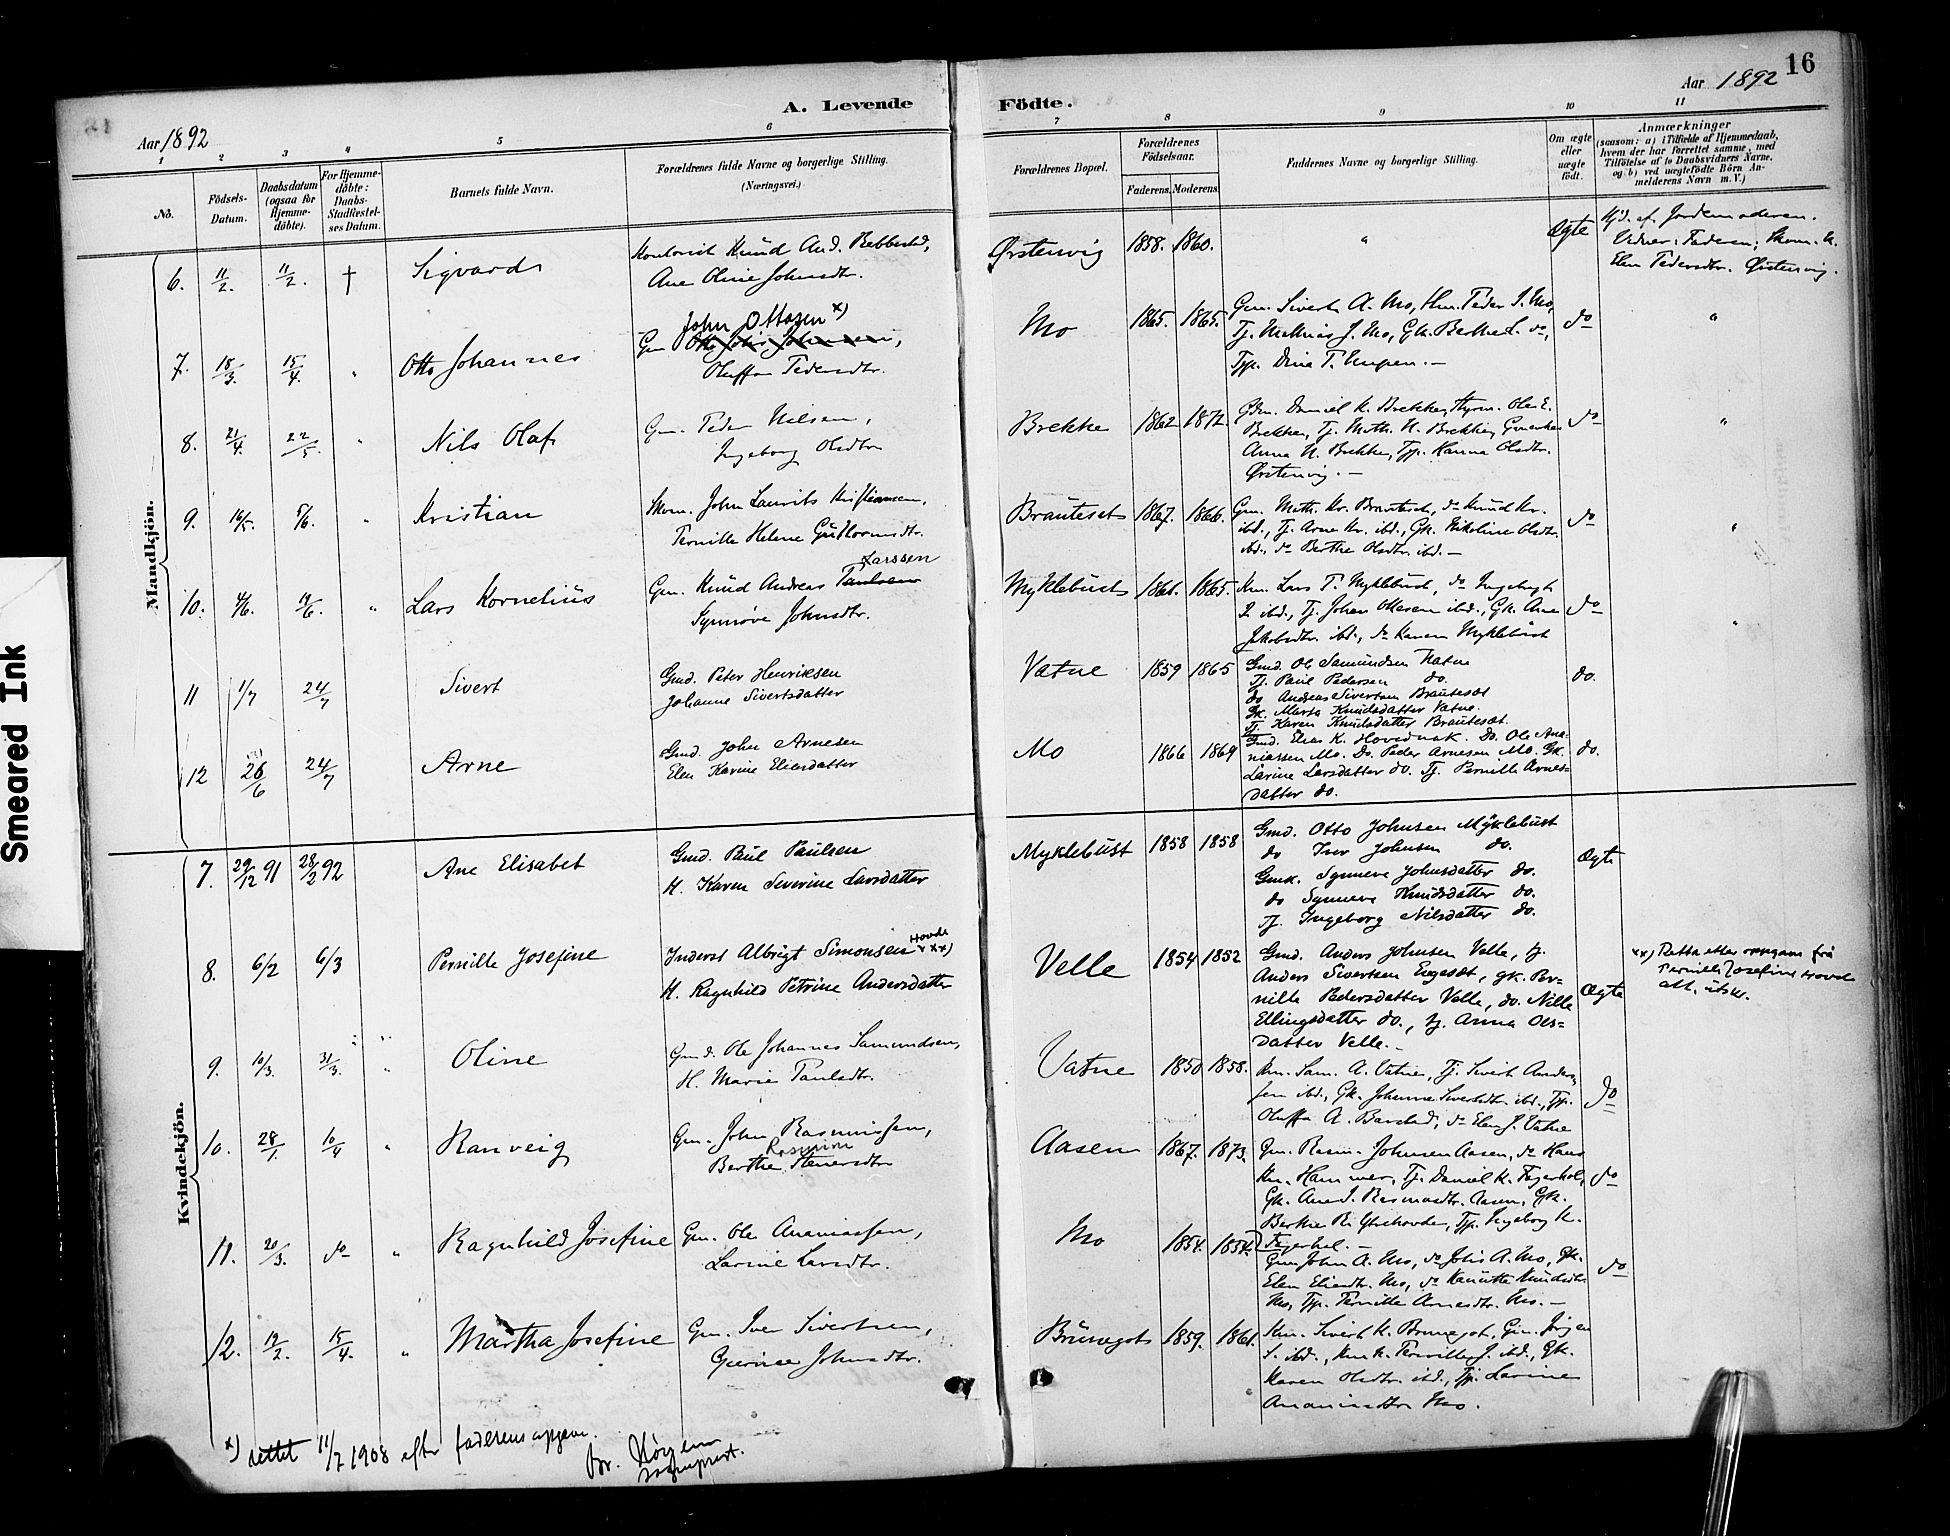 16
Aar 1892
A. Levende Födte.
Aar 1892
1 2 3 4 5 6 7 8 9 10 11
No.
Födsels-Datum.
Daabsdatum (ogsaa for Hjemme-döbte).
For Hjemme-döbte: Daabs-Stadfæstel-ses Datum.
Barnets fulde Navn.
Forældrenes fulde Navne og borgerlige Stilling.
(Næringsvei.)
Forældrenes Bopæl.
Forældrenes Födselsaar.
Faderens. Moderens.
Faddernes Navne og borgerlige Stilling.
Om ægte eller uægte födt.
Anmærkninger
(saasom: a) i Tilfælde af Hjemmedaab, hvem der har forrettet samme, med Tilföielse af to Daabsvidners Navne, og b) ved uægtefödte Börn Anmelderens Navn m. V.)
Mandkjön.
6. 11/2. 11/2. † Sigvard
Knud And.
Ane Oline Johnsdtr.
Ørstenvig 1858. 1860. " Ægte
Hjd. af Jordemoderen.
Faderen,
Elen Pedersdtr. Ørstenvig.
7. 18/3. 15/4. " Otto Johannes
John Ottosen x)
Gm.
Oluffa Pedersdtr.
Mo 1865. 1865.
Gm. Sivert A. Mo, Peder S. Mo,
Tj. Mathias J. Mo, Gk. Berthe L. do,
Typ. Dina T.
do "
8. 21/4. 22/5. " Nils Olaf
Gm. Peder Nilsen,
Ingeborg Olsdtr
Brekke 1862 1872.
Gm. Daniel K. Brekke, Ole E.
Brekke, Tj. Math. N. Brekke,
Anna N. Brekke, Typ. Hanna Olsdtr.
Ørstenvig. —
do "
9. 16/5. 5/6. " Kristian
John Laurits Kristiansen,
Pernille Helene Guttormsdtr.
Brauteset 1867. 1866.
Gm. Math. Kr. Brauteset, do Knud Kr.
ibd., Tj. Arne Kr. ibd., Gk. Nikoline Olsdtr.
ibd., do Berthe Olsdtr. ibd. —
do "
10. 4/6. 19/6. " Lars Kornelius
Larssen
Gm. Knud Andreas Paulsen
Synnøve Johnsdtr.
Myklebust 1861. 1865.
Km. Lars P. Myklebust, do
ibd., Tj. Johan Ottesen ibd., Gk. Ane
Jakobsdtr. ibd., do Karen Myklebust
do "
11 1/7 24/7 Sivert
Gmd. Peter Henriksen
Johanne Sivertsdatter
Vatne 1859 1865
Gmd. Ole Samundsen Vatne
Tj. Paul Pedersen do.
do Andreas Sivertsen Brautesæt
Gk. Marta Knudsdatter Vatne.
Tj. Karen Knudsdatter Brautesæt.
do.
12 26/6 24/7 Arne
Gmd. John Arnesen
Elen Karine Eliasdatter
Mo 1866 1869
Gmd. Elias K. Hovednak. Do. Ole Ana-
niassen Mo. Do. Peder Arnesen Mo. Gk.
Larine Larsdatter do. Tj. Pernille Arnes-
datter do.
do.
Kvindekjön.
7. 29/12 91 28/2 92 Ane Elisabet
Gmd. Paul Paulsen
H. Karen Severine Larsdatter
Myklebust 1858 1858
Gmd. Otto Johnsen Myklebust
do Iver Johnsen do.
Gmk. Synneve Johnsdatter do.
do Synneve Knudsdatter do.
Tj. Ingeborg Nilsdatter do.
Ægte
8. 6/2 6/3 Pernille Josefine
Hovde
Inderst Albrigt Simonsen xxx)
H. Ragnhild Petrine Andersdatter
Velle 1854 1852
Gmd. Anders Johnsen Velle, tj.
Anders Sivertsen Engesæt, gk. Per-
nille Pedersdatter Velle, do. Nille
Ellingsdatter do., tj. Anna Ols-
datter Velle. —
Ægte
xx) Retta etter oppgave frå
Pernille Josefine Hovde
9. 10/3. 31/3. " Oline
Gmd. Ole Johannes Samundsen,
H. Marie Paulsdtr.
Vatne 1850 1858.
Km. Sam. A. Vatne, Tj. Sivert Anders-
sen ibd., Gk. Johanne Sivertsdtr. ibd., Typ.
Oluffa A. Barstad, do Elen J. Vatne
do
10. 28/1. 10/4 " Ranveig
Gm. John Rasmussen,
Rasmine
Berthe Stenersdtr
Aasen 1867. 1873.
Gm. Rasm. Johnsen Aasen, do Hans
Kn. Hammer, Tj. Daniel K. Fagerhol,
Gk. Ane J. Rasmusdtr. Aasen, Gk.
Berthe R. Ytrehovde, Typ. Ingeborg K.
Fagerhol. —
do
11. 20/3. do " Ragnhild Josefine
Gm. Ole Ananiassen,
Larine Larsdtr.
Mo 1854. 1854.
Gm. John A. Mo, do Johs A. Mo, Gk.
Elen Eliasdtr. Mo, do Knudsdtr.
Mo, Typ. Pernille Arnesdtr. Mo. —
do
12. 19/2. 15/4. " Martha Josefine
Gm. Iver Sivertsen,
Gurine Johnsdtr.
Brunegot 1859. 1861.
Km. Sivert K. Brunegot, Gm. Jørgen
S. ibd., Pernille J. ibd., Gk.
Karen Olsdtr. ibd., Typ. Larine
Ananiasdtr. Mo.
x) rettet 11/7 1908 efter faderens opgave.
Jørgensen
sogneprest.
Smeared Ink